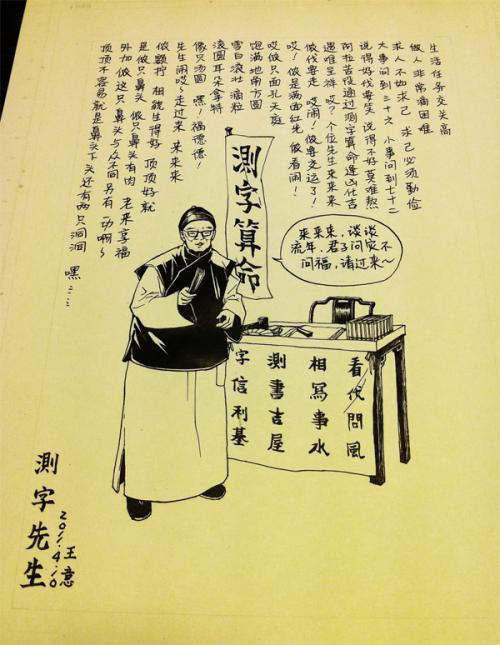 生活任务交关高
做人非常滴困难
求人不如求己 求己必须勤俭
大事问到三十六 小事问到七十二
说得好伐要笑 说得不好莫难熬
阿拉苦役通过测字算命逢凶化吉
遇难呈祥 哎?个位先生来来来
侬伐要走 哎闹!侬要交运了!
哎!侬是满面红光 侬看闹!
哎侬只面孔天庭
饱满地阁方圆
雪白滚壮滴粒
滚圆耳朵拿特
像只汤圆 嘿!福德德!
先生闹哎~走过来 来来来
侬颗柠 相貌生得好 顶顶好就
是侬只鼻头 侬只鼻头有肉 老来享福
外加侬这只鼻头与众不同 另有一功啊~
顶顶不容易就是鼻头下头还有两只洞洞 嘿
測字算命
来来来,谈谈
流年,君子问灾不
问福,请过来~
看代問風
相寫事水
測書吉屋
字信利基
測字先生
2011.4.10
王意